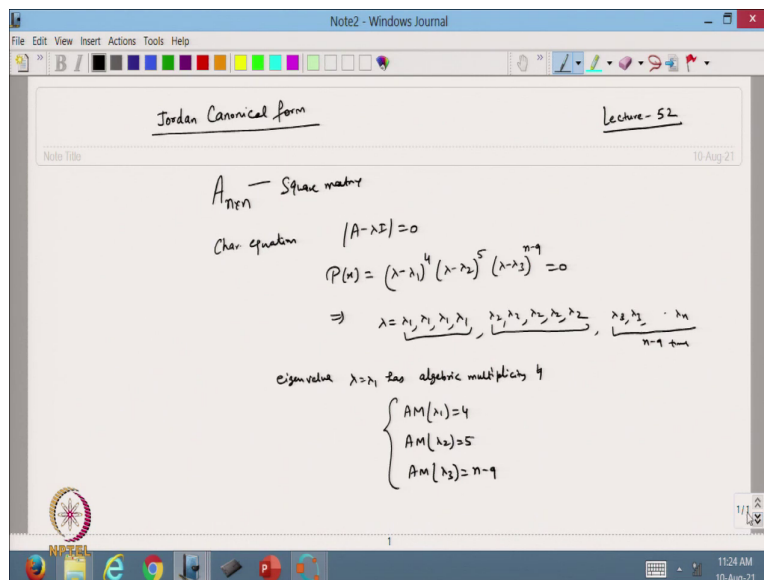 Note2 - Windows Journal
File Edit View Insert Actions Tools Help
Jordan Canonical form
Lecture-52
Note Title
10-Aug-21
A n×n — Square matrix
Char. equation |A-λI|=0
P(x) = (λ-λ1)^4 (λ-λ2)^5 (λ-λ3)^{n-9} =0
⇒ λ= λ1, λ1, λ1, λ1, λ2, λ2, λ2, λ2, λ2, λ3, λ3, . λn
n-9 time
eigenvalue λ=λ1 has algebric multiplicity 4
AM(λ1)=4
AM(λ2)=5
AM(λ3)=n-9
1/1
1
NPTEL
11:24 AM
10-Aug-21